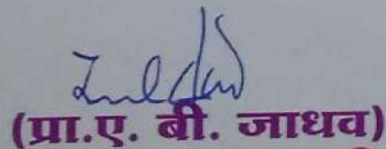 (प्रा.ए. बी. जाधव)